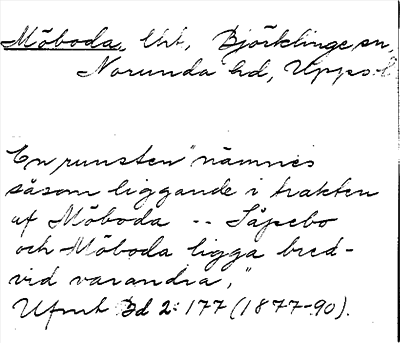 Möboda, Utt, Björklinge sn,
Norunda hd, Upps. l.
En runsten "nämnes
såsom liggande i trakten
af Möboda -- Såpebo
och Möboda ligga bred-
vid varandra,"
Ufmt Bd 2: 177 (1877-90).